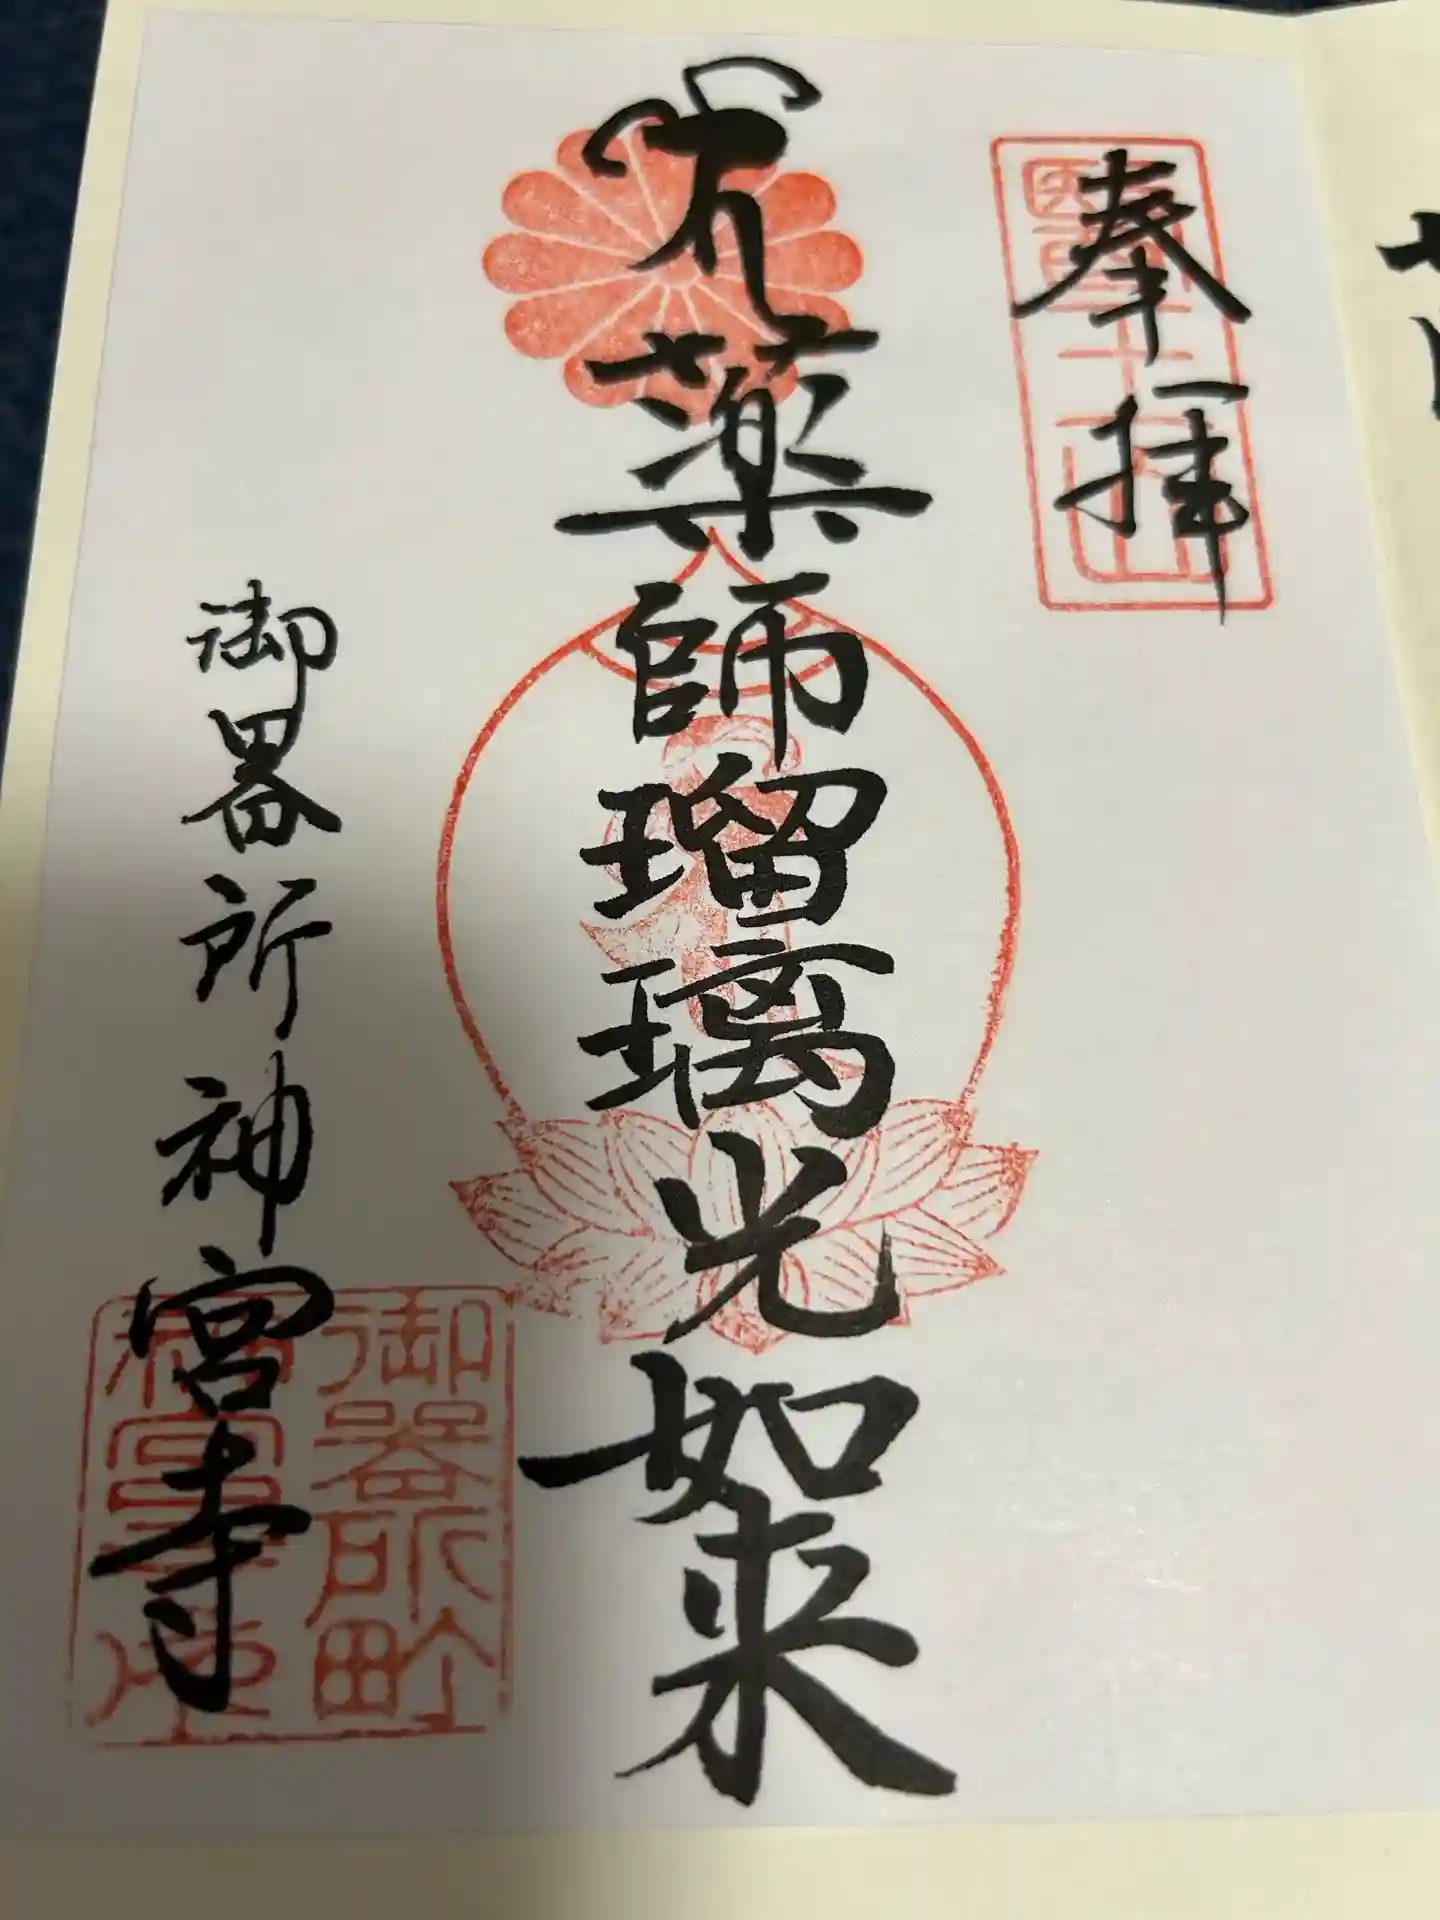 奉拝
薬師瑠璃光如来
御器所神宮寺
御器所町